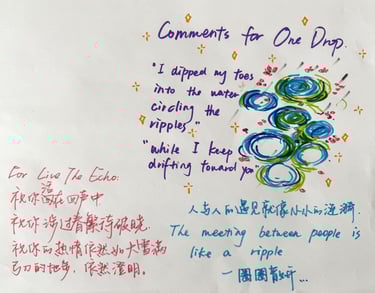 Comments for One Drop.
"I dipped my toes
into the water
circling the
ripples"
"while I keep
drifting toward you
For Live The Echo:
祝你 在回声中
祝你涉过 繁 待破晓,
祝你的热情依然如大雪满
弓刀的 , 依然澄明。
人与人的遇见就像小小的涟漪.
The meeting between people is
like a ripple
一圈圈 ...